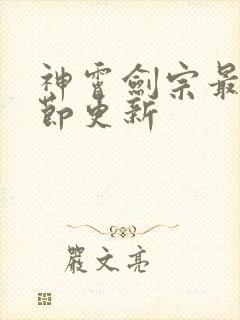 神霄劍宗最
節更新
嚴文亮